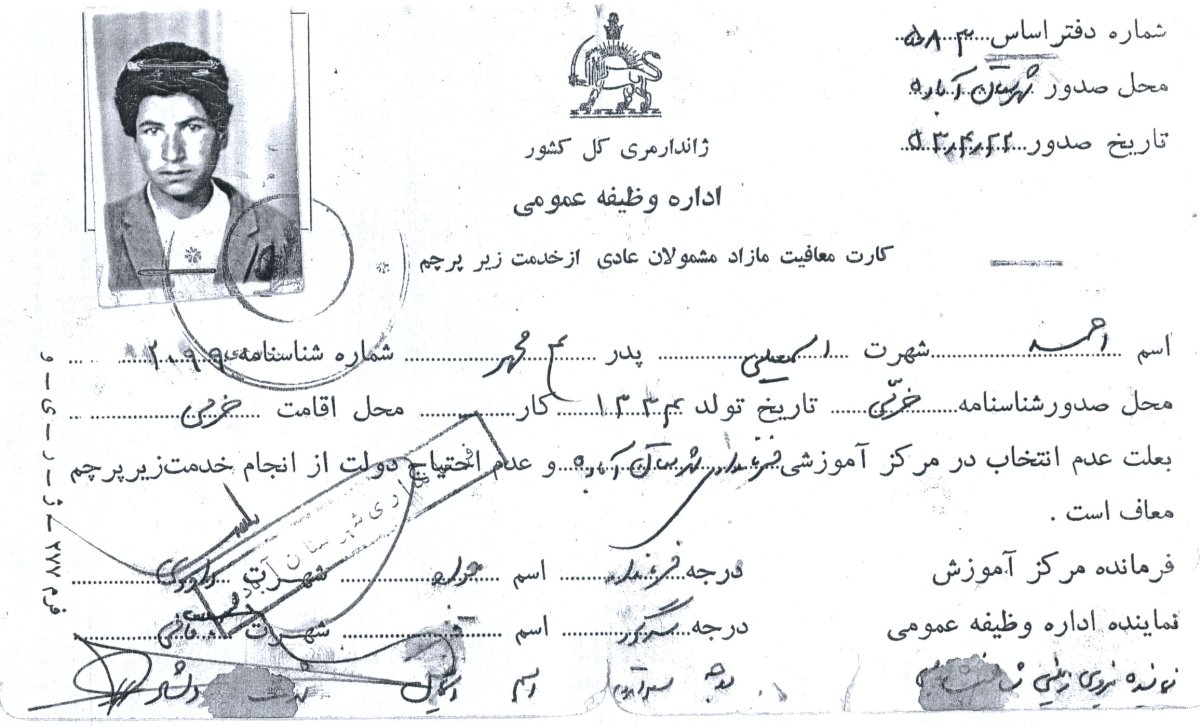 شماره دفتر اساس ۵۸۳
محل صدور شهرستان آباده
تاریخ صدور ۵۳٫۴٫۲۲
ژاندارمری کل کشور
اداره وظیفه عمومی
کارت معافیت مازاد مشمولان عادی از خدمت زیر پرچم
اسم احمد شهرت پدر شماره شناسنامه
محل صدور شناسنامه خرمی تاریخ تولد ۱۳۳۴ کار محل اقامت خرمی
بعلت عدم انتخاب در مرکز آموزشی فرماندار شهرستان آباده و عدم احتیاج دولت از انجام خدمت زیر پرچم
معاف است .
فرمانده مرکز آموزش درجه فرماندار اسم شهرت
نماینده اداره وظیفه عمومی درجه سرگرد اسم شهرت
نماینده نیروی
فرمانداری شهرستان آباده
فرم ۲۷۷ ـ ژ ـ ر ـ ی ـ و